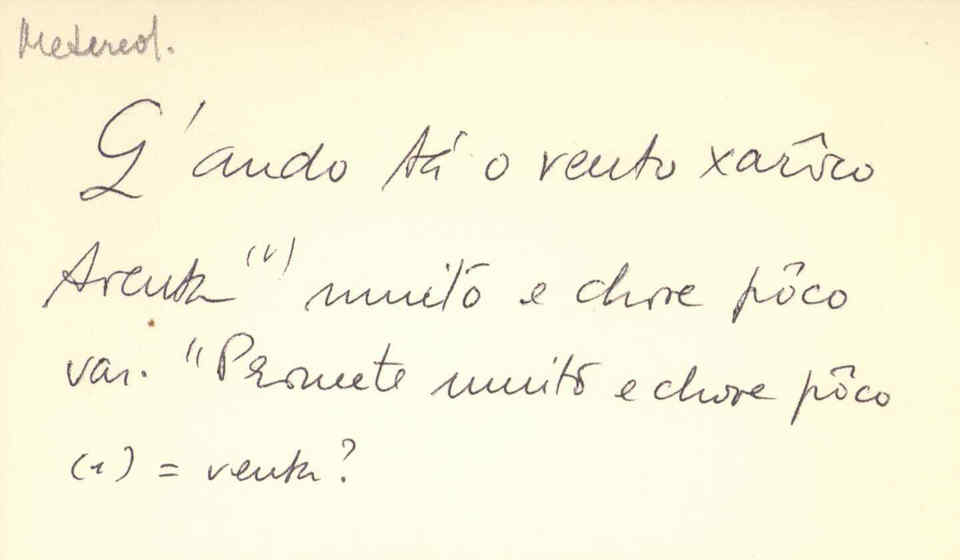 Metereol.
Q'ando tá o vento xarôco
Aventa (1) muitô e chove pôco
var. "Promete muitô e chove pôco
(1) = venta?